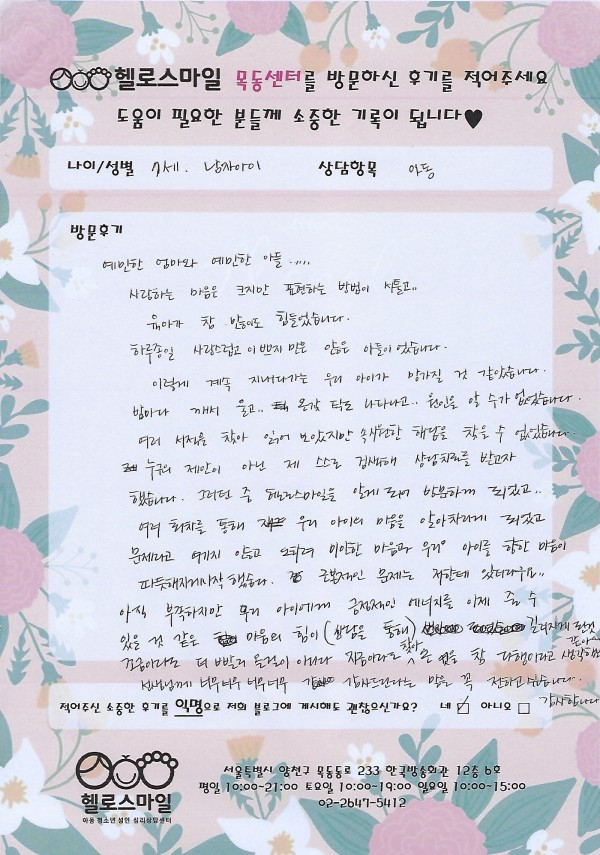 헬로스마일 목동센터를 방문하신 후기를 적어주세요
도움이 필요한 분들께 소중한 기록이 됩니다♥
나이/성별 7세. 남자아이 상담항목 아동
방문후기
예민한 엄마와 예민한 아들.....
사랑하는 마음은 크지만 표현하는 방법이 서툴고..
육아가 참 많이도 힘들었습니다.
하루종일 사랑스럽고 이쁘지 만은 않은 아들이었습니다.
이렇게 계속 지내다가는 우리 아이가 망가질 것 같았습니다.
밤마다 깨서 울고.. 온갖 틱도 나타나고.. 원인을 알 수가 없었습니다.
여러 서적을 찾아 읽어 보았지만 속시원한 해답을 찾을 수 없었습니다.
누구의 제안이 아닌 제 스스로 검색해 상담치료를 받고자
했습니다. 그러던 중 헬로스마일을 알게 되어 방문하게 되었고..
여러 회차를 통해 우리 아이의 마음을 알아차리게 되었고
문제라고 여기지 않고 오히려 미안한 마음과 우리 아이를 향한 마음이
따듯해지게시작했습니다. 근본적인 문제는 저한테 있더라구요..
아직 부족하지만 우리 아이에게 긍정적인 에너지를 이제 줄 수
있을 것 같은 마음의 힘이 (상담을 통해) 길러지게 된것
같아
조금이라도 더 빠르지 않아 지금이라도 찾아 온 것을 참 다행이라고 생각해요
선생님께 너무너무 너무너무 감사드린다는 말을 꼭 전하고 싶습니다.
감사합니다
적어주신 소중한 후기를 익명으로 저희 블로그에 게시해도 괜찮으신가요? 네 ☑ 아니오 □
헬로스마일
아동 청소년 성인 심리상담센터
서울특별시 양천구 목동동로 233 한국방송회관 12층 6호
평일 10:00~21:00 토요일 10:00~19:00 일요일 10:00~15:00
02-2647-5412